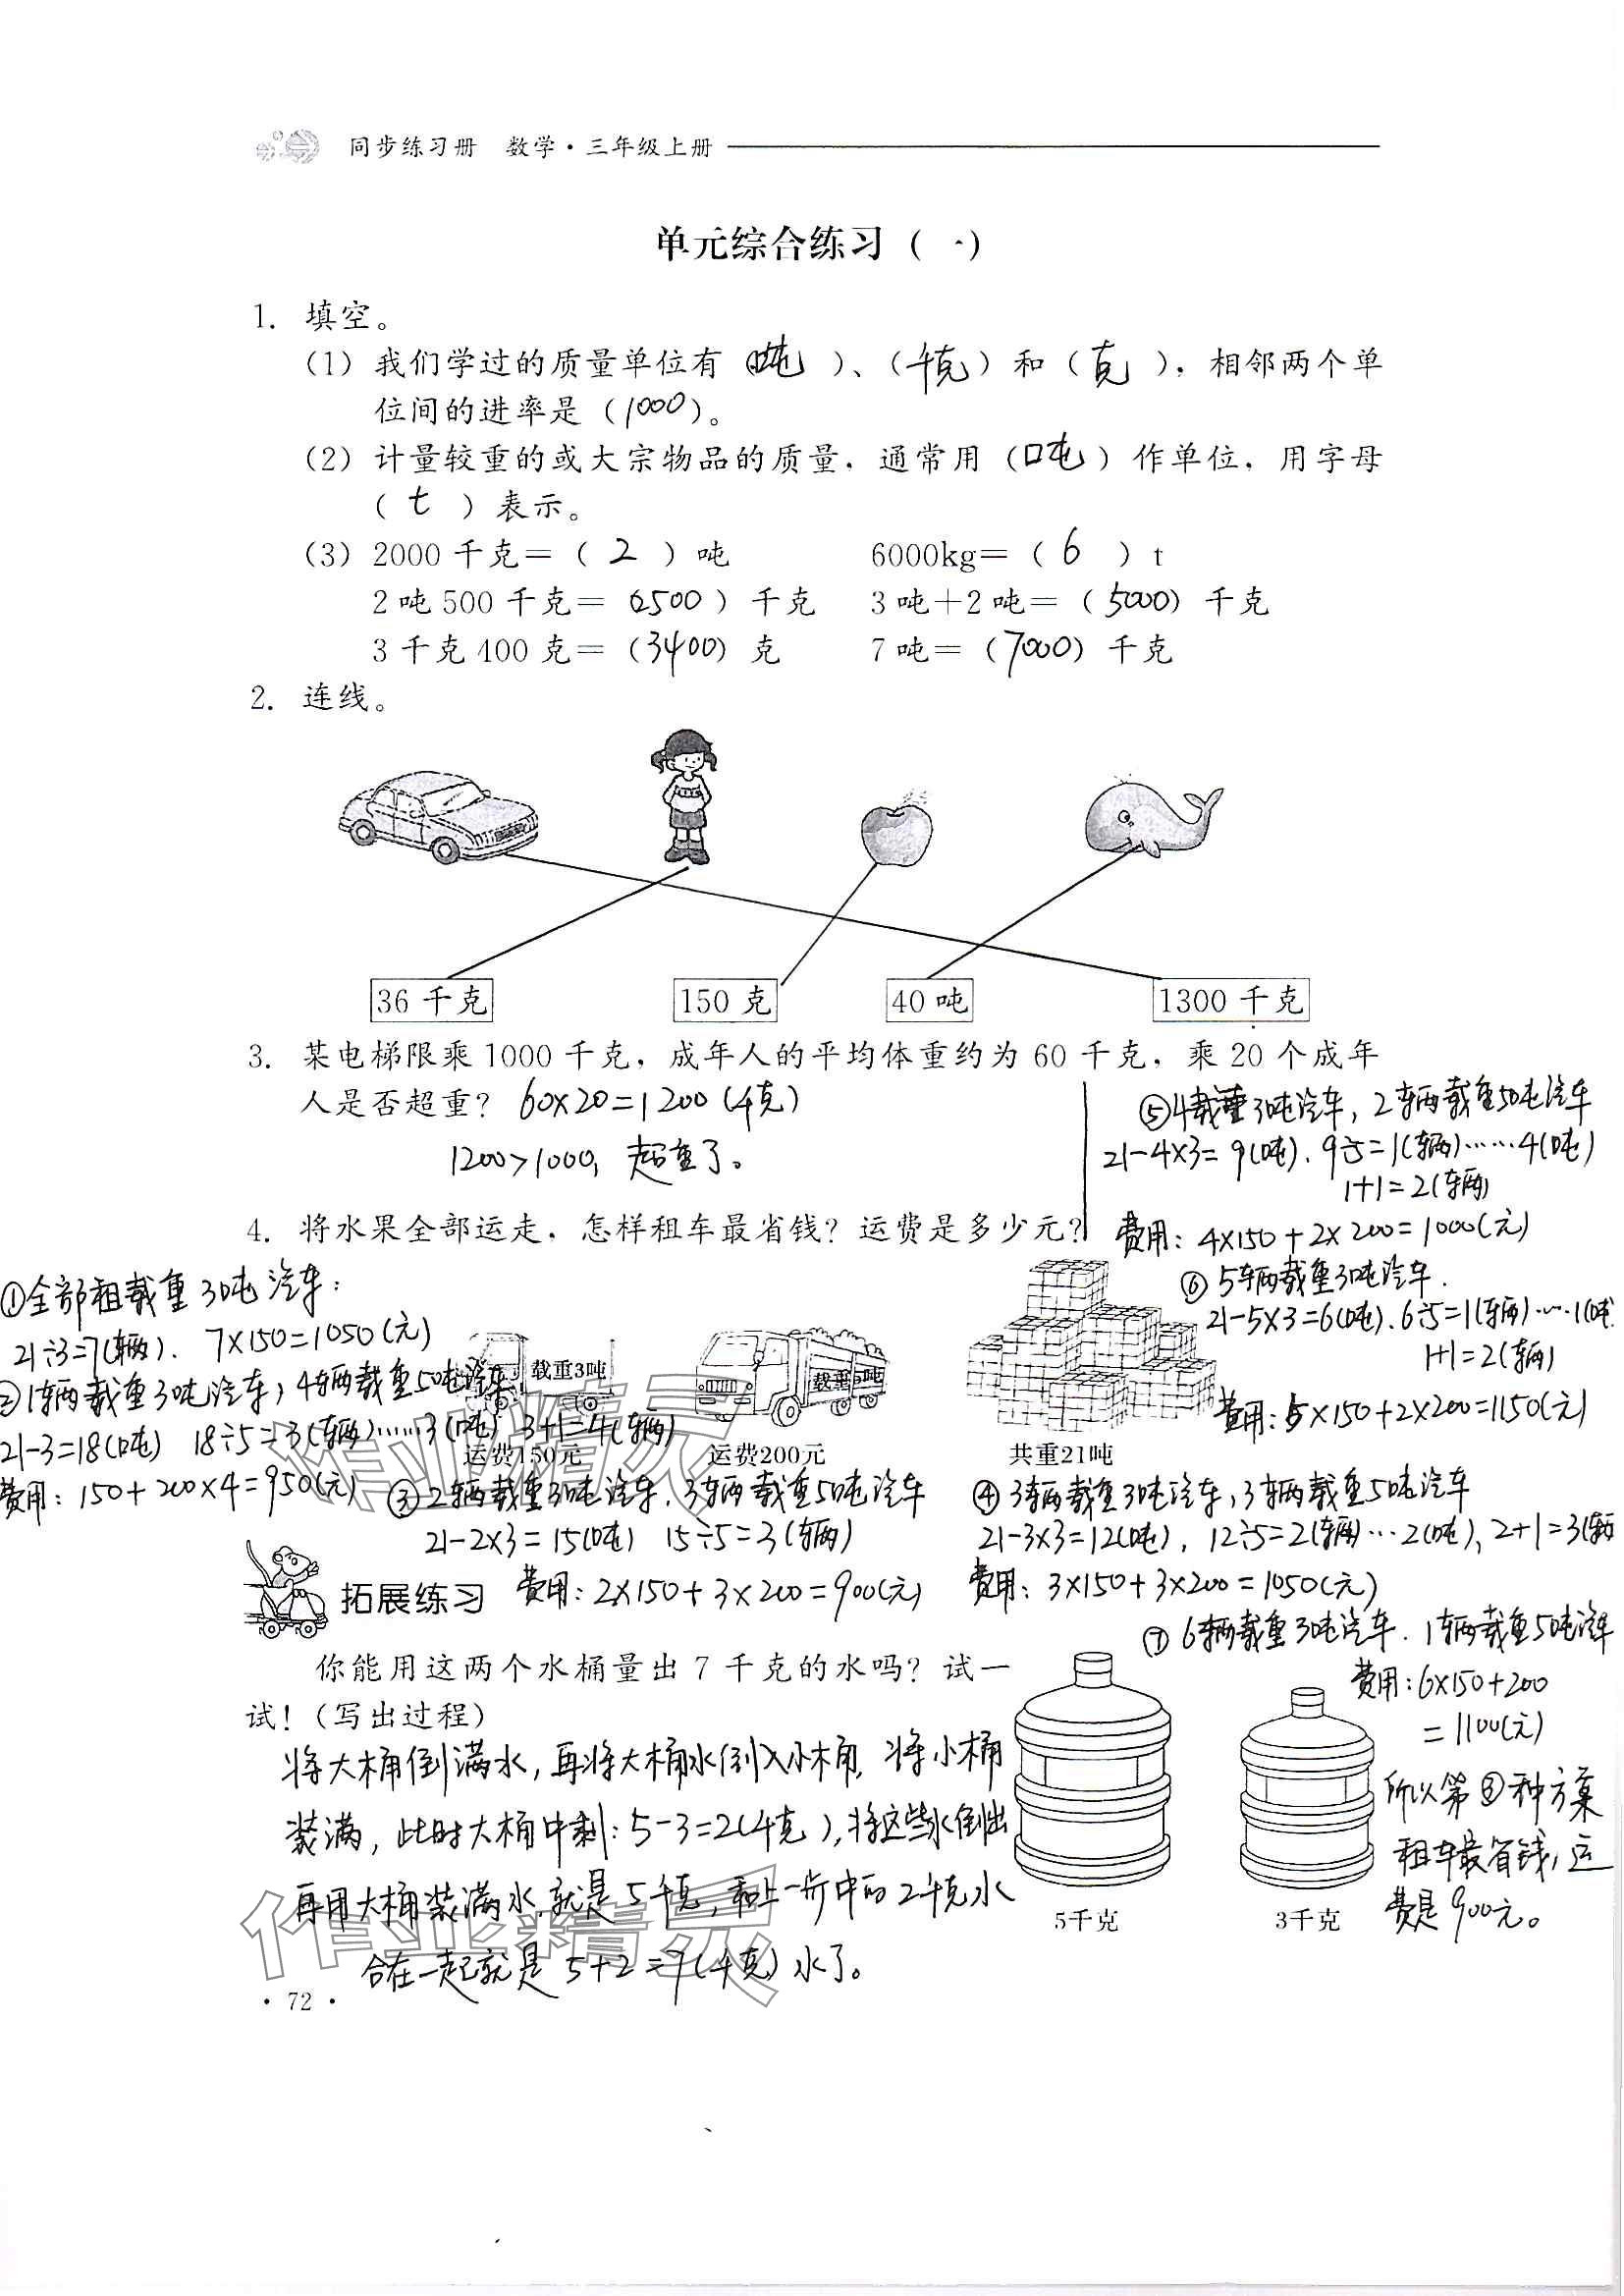 同步练习册 数学·三年级上册
单元综合练习(一)
1. 填空。
(1) 我们学过的质量单位有(吨)、(千克)和(克)，相邻两个单
位间的进率是(1000)。
(2) 计量较重的或大宗物品的质量，通常用(吨)作单位，用字母
(t)表示。
(3) 2000千克=(2)吨 6000kg=(6)t
2吨500千克=(2500)千克 3吨+2吨=(5000)千克
3千克400克=(3400)克 7吨=(7000)千克
2. 连线。
36千克 150克 40吨 1300千克
3. 某电梯限乘1000千克，成年人的平均体重约为60千克，乘20个成年
人是否超重？ 60×20=1200(千克)
1200>1000, 超重了。
4. 将水果全部运走，怎样租车最省钱？运费是多少元？
①全部租载重3吨汽车:
21÷3=7(辆). 7×150=1050(元)
②1辆载重3吨汽车, 4辆载重5吨汽车
21-3=18(吨) 18÷5=3(辆)……3(吨) 3+1=4(辆)
费用: 150+200×4=950(元)
载重3吨
运费150元
载重5吨
运费200元
共重21吨
③2辆载重3吨汽车, 3辆载重5吨汽车
21-2×3=15(吨) 15÷5=3(辆)
费用: 2×150+3×200=900(元)
④3辆载重3吨汽车, 3辆载重5吨汽车
21-3×3=12(吨), 12÷5=2(辆)…2(吨), 2+1=3(辆
费用: 3×150+3×200=1050(元)
⑤4载重3吨汽车, 2辆载重5吨汽车
21-4×3=9(吨). 9÷5=1(辆)……4(吨)
1+1=2(辆)
费用: 4×150+2×200=1000(元)
⑥5辆载重3吨汽车.
21-5×3=6(吨). 6÷5=1(辆)……1(吨
1+1=2(辆)
费用: 5×150+2×200=1150(元)
⑦6辆载重3吨汽车. 1辆载重5吨汽车
费用: 6×150+200
=1100(元)
所以第③种方案
租车最省钱, 运
费是900元。
拓展练习
你能用这两个水桶量出7千克的水吗？试一
试！(写出过程)
将大桶倒满水, 再将大桶水倒入小桶, 将小桶
装满, 此时大桶中剩: 5-3=2(千克), 将这些水倒出
再用大桶装满水, 就是5千克, 和上一步中的2千克水
合在一起就是5+2=7(千克)水了。
5千克 3千克
·72·
作业精灵
作业精灵